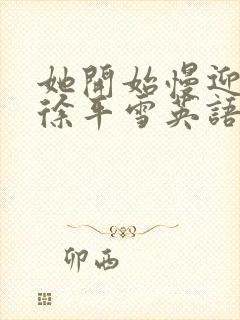 她開始慢迎
徐平雪英語
卯西